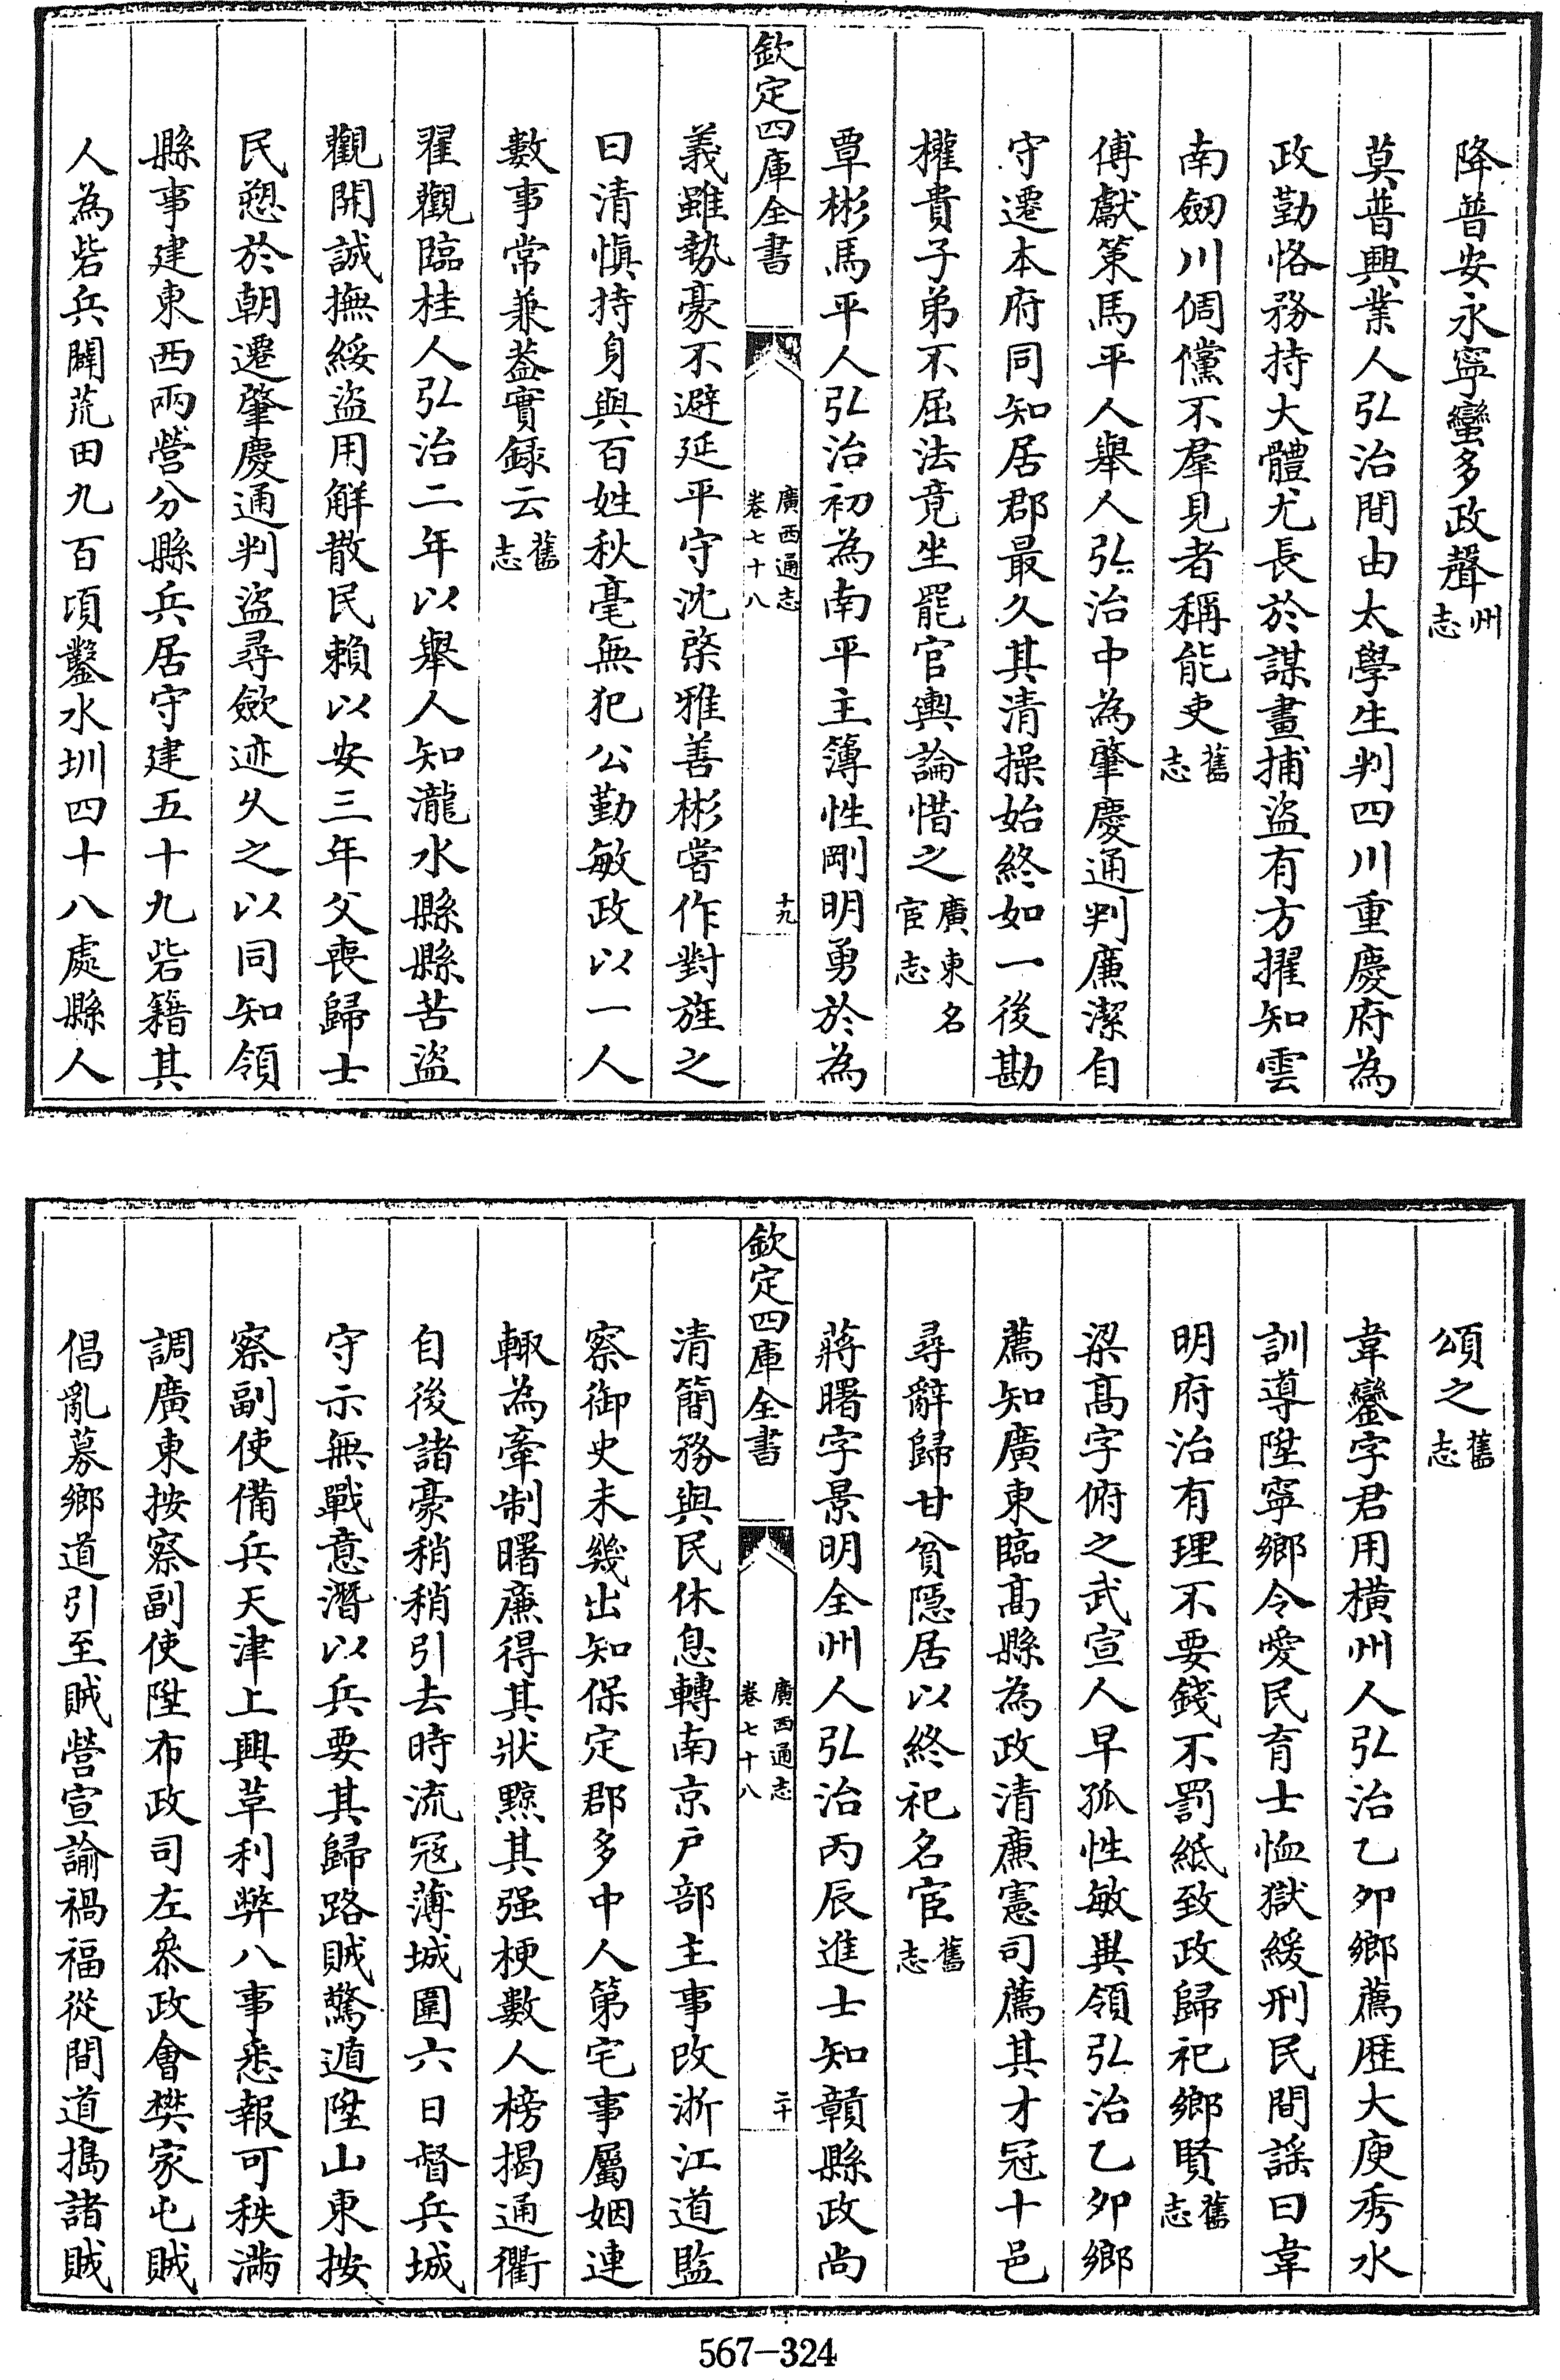 降普安永寧蠻多政聲州志
莫普興業人弘治間由太學生判四川重慶府為
政勤恪務持大體尤長於謀畫捕盜有方擢知雲
南劒川倜儻不羣見者稱能吏舊志
傅獻策馬平人舉人弘治中為肇慶通判廉潔自
守遷本府同知居郡最久其清操始終如一後勘
權貴子弟不屈法竟坐罷官輿論惜之廣東名宦志
覃彬馬平人弘治初為南平主簿性剛明勇於為
欽定四庫全書
廣西通志
卷七十八
十九
義雖勢豪不避延平守沈棨雅善彬嘗作對旌之
曰清慎持身與百姓秋毫無犯公勤敏政以一人
數事常兼葢實録云舊志
翟觀臨桂人弘治二年以舉人知瀧水縣縣苦盜
觀開誠撫綏盜用解散民賴以安三年父喪歸士
民愬於朝遷肇慶通判盜尋歛迹久之以同知領
縣事建東西兩營分縣兵居守建五十九砦籍其
人為砦兵闢荒田九百頃鑿水圳四十八處縣人
頌之舊志
韋鑾字君用橫州人弘治乙夘鄉薦歴大庾秀水
訓導陞寧鄉令愛民育士恤獄緩刑民間謡曰韋
明府治有理不要錢不罰紙致政歸祀鄉賢舊志
梁高字俯之武宣人早孤性敏異領弘治乙夘鄉
薦知廣東臨高縣為政清廉憲司薦其才冠十邑
尋辭歸甘貧隱居以終祀名宦舊志
蔣曙字景明全州人弘治丙辰進士知贛縣政尚
欽定四庫全書
廣西通志
卷七十八
二十
清簡務與民休息轉南京戶部主事改浙江道監
察御史未幾出知保定郡多中人第宅事屬姻連
輙為牽制曙廉得其狀黥其强梗數人榜揭通衢
自後諸豪稍稍引去時流冦薄城圍六日督兵城
守示無戰意潛以兵要其歸路賊驚遁陞山東按
察副使備兵天津上興革利弊八事悉報可秩滿
調廣東按察副使陞布政司左叅政會樊家屯賊
倡亂募鄉道引至賊營宣諭禍福從間道搗諸賊
567-324